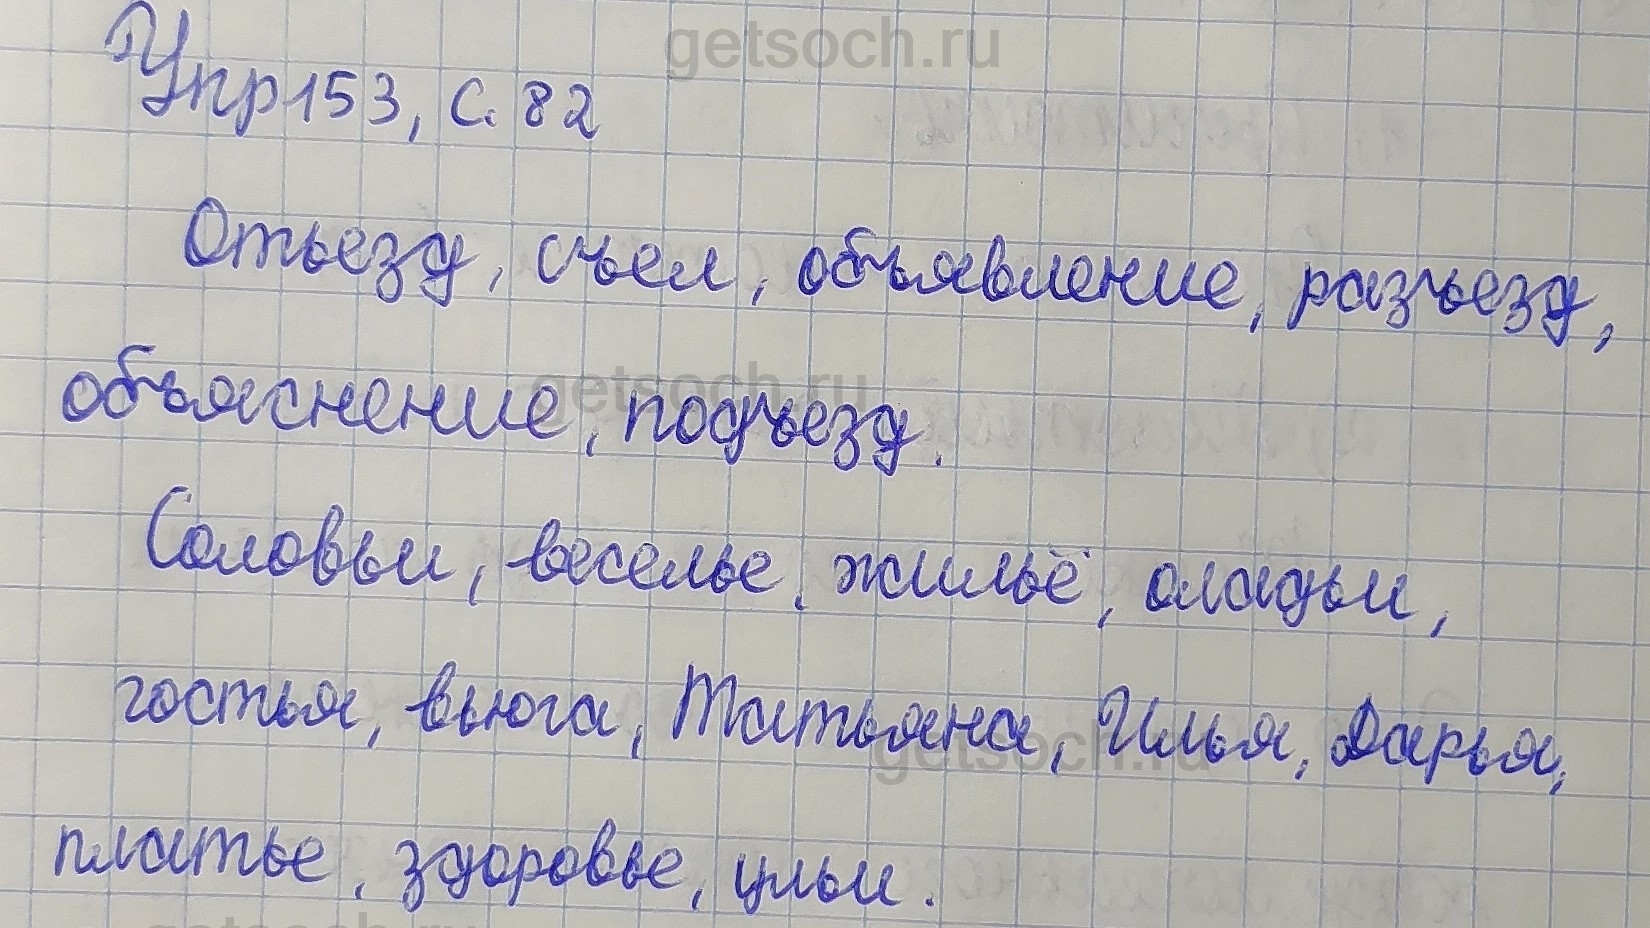 getsoch.ru
Упр 153, с. 82
Отъезд, съел, объявление, разъезд,
getsoch.ru
объяснение, подъезд.
Соловьи, веселье, жильё, оладьи,
гостья, вьюга, Татьяна, Илья, Дарья,
getsoch.ru
платье, здоровье, ульи.
getsoch.ru